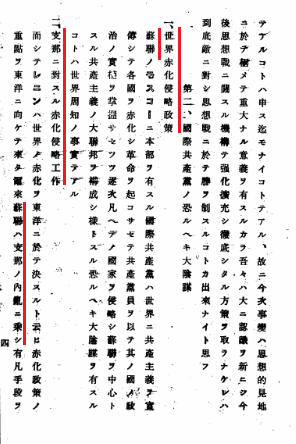 テアルコトハ申ス迄モナイコトテアル、故ニ今次事變ハ思想的見地
ニ於テ極メテ重大ナル意義ヲ有スルカラ吾々ハ大ニ認識ヲ新ニシ今
後思想戰ニ關スル機構ヲ强化擴充シ徹底シタル方策ヲ取ラナケレハ
到底敵ニ對シ思想戰ニ於テ勝ヲ制スルコトカ出來ナイト思フ
第二、國際共產黨ノ恐ルヘキ大陰謀
一、世界赤化侵略政策
蘇聯ノモスコーニ本部ヲ有スル國際共產黨ハ世界ニ共產主義ヲ宣
傳シテ各國ヲ赤化シ革命ヲ起コサセテ共產黨員ヲ以テ其ノ國ノ政
治ノ實權ヲ掌握サセツツ逐次凡ヘテノ國家ヲ侵略シ蘇聯ヲ中心ト
スル共產主義ノ大聯邦ヲ構成シ樣トスル恐ルヘキ大陰謀ヲ有スル
コトハ世界周知ノ事實テアル
二、支那ニ對スル赤化侵略工作
而シテレニンハ世界ノ赤化ヲ東洋ニ於テ決スルト云ヒ赤化政策ノ
重點ヲ東洋ニ向ケテ來タ爾來蘇聯ハ支那ノ內亂ニ乘シ有ル手段ヲ
四